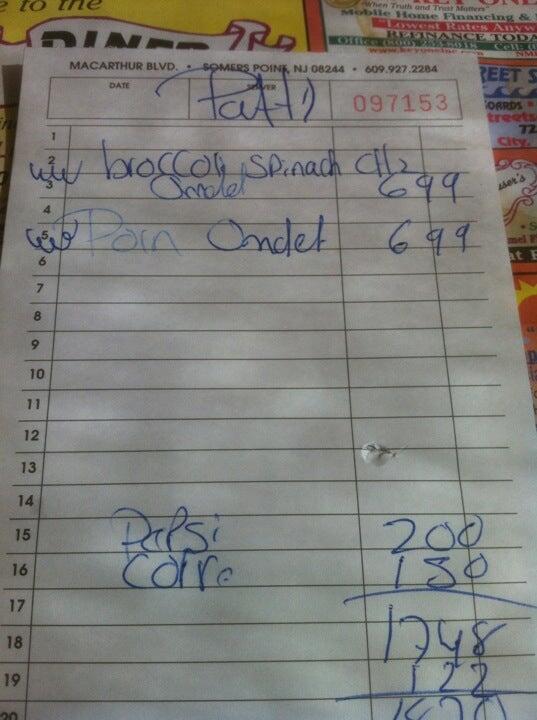 e to the
DINER
"When Truth and Trust Matters"
Mobile Home Financing &
"Lowest Rates Anyw
REFINANCE TODA
MACARTHUR BLVD. • SOMERS POINT, NJ 08244 • 609.927.2284
DATE SERVER
Patti 097153
1
2 broccoli spinach chz
3 omelet 6 99
4
5 Porn Omelet 6 99
6
7
8
9
10
11
12
13
14
15 Papsi 2 00
16 Coffe 1 50
17
18 17 48
19 1 22
20
REET S
OARDS
treets
72
City,